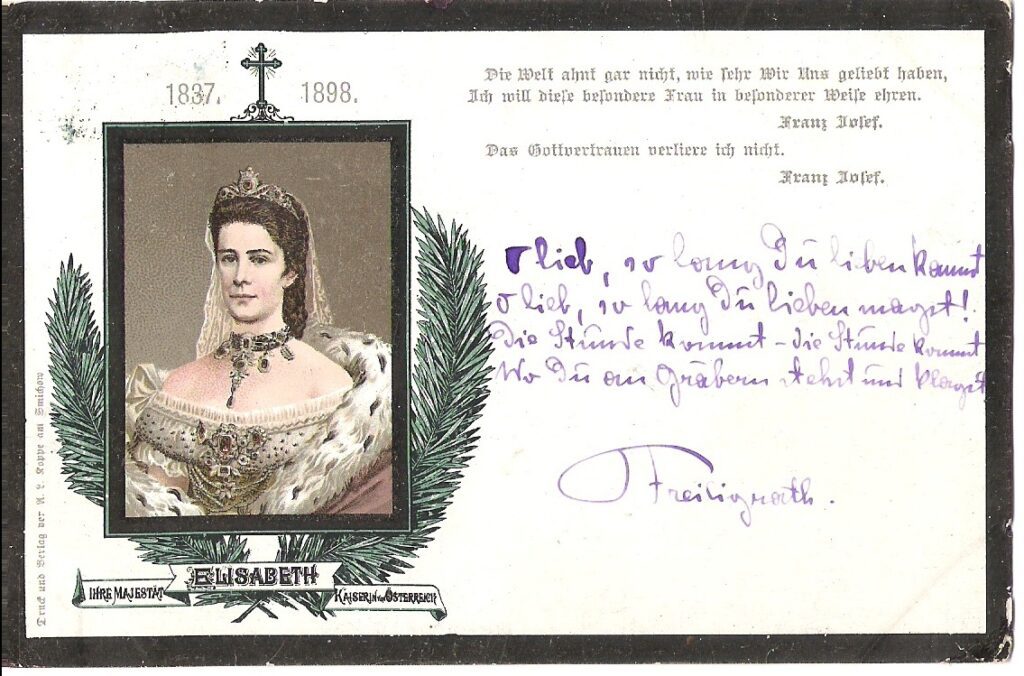 1837. 1898.
Die Welt ahnt gar nicht, wie sehr Wir Uns geliebt haben,
Ich will diese besondere Frau in besonderer Weise ehren.
Franz Josef.
Das Gottvertrauen verliere ich nicht.
Franz Josef.
O lieb, so lang Du lieben kannst
O lieb, so lang Du lieben magst!
Die Stunde kommt – die Stunde kommt
Wo Du an Gräbern stehst und klagst
Freiligrath.
IHRE MAJESTÄT ELISABETH KAISERIN VON ÖSTERREICH
Druck und Verlag der A. L. Koppe am Smichow